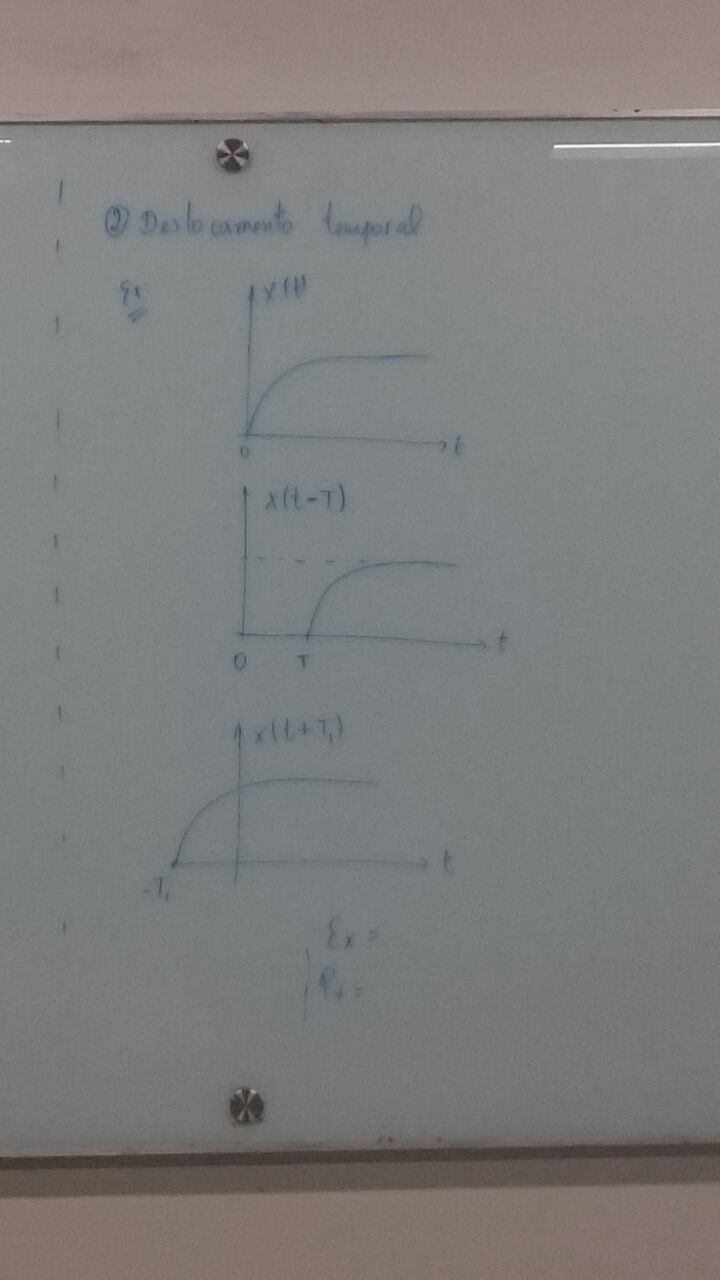 ② Deslocamento temporal
Ex
x(t)
0 t
x(t-T)
0 T t
x(t+T₁)
-T₁ t
Ex =
Px =